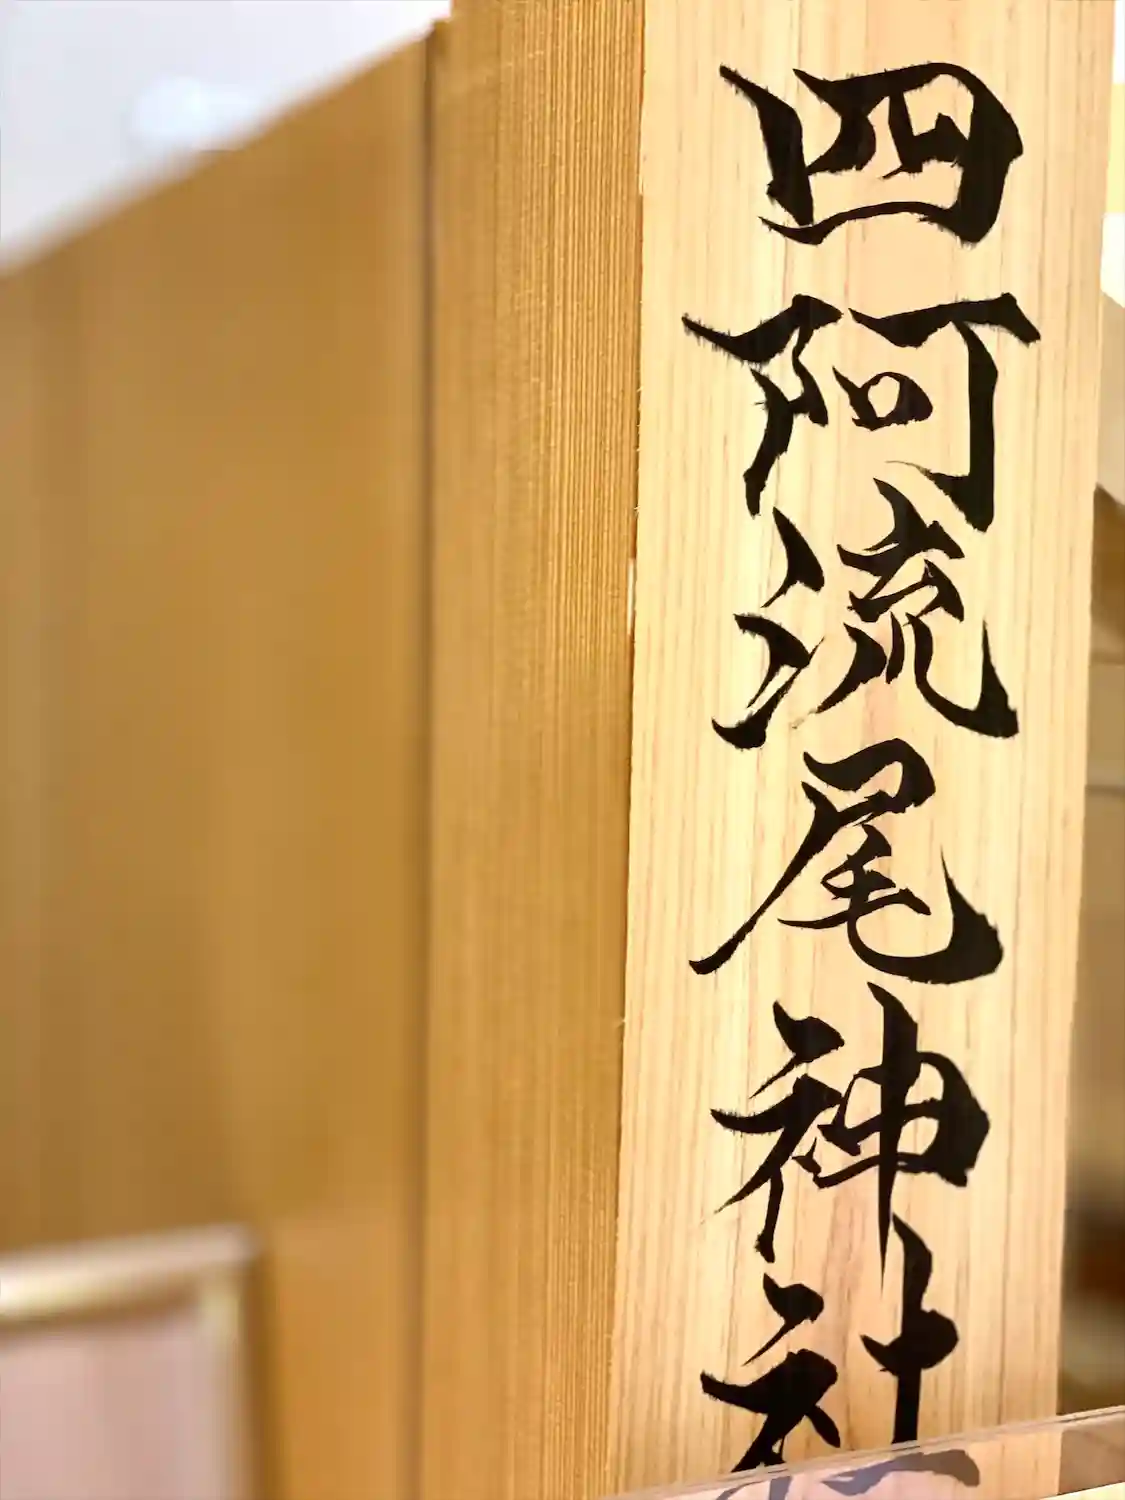 四阿流尾神社